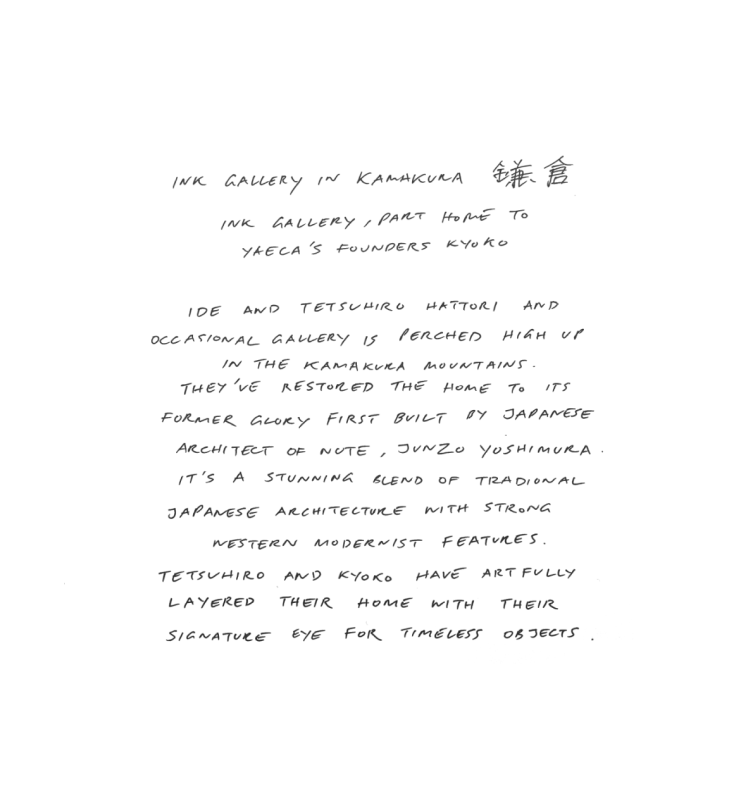 INK GALLERY IN KAMAKURA 鎌倉
INK GALLERY, PART HOME TO
YAECA'S FOUNDERS KYOKO
IDE AND TETSUHIRO HATTORI AND
OCCASIONAL GALLERY IS PERCHED HIGH UP
IN THE KAMAKURA MOUNTAINS.
THEY'VE RESTORED THE HOME TO ITS
FORMER GLORY FIRST BUILT BY JAPANESE
ARCHITECT OF NOTE, JUNZO YOSHIMURA.
IT'S A STUNNING BLEND OF TRADIONAL
JAPANESE ARCHITECTURE WITH STRONG
WESTERN MODERNIST FEATURES.
TETSUHIRO AND KYOKO HAVE ARTFULLY
LAYERED THEIR HOME WITH THEIR
SIGNATURE EYE FOR TIMELESS OBJECTS.